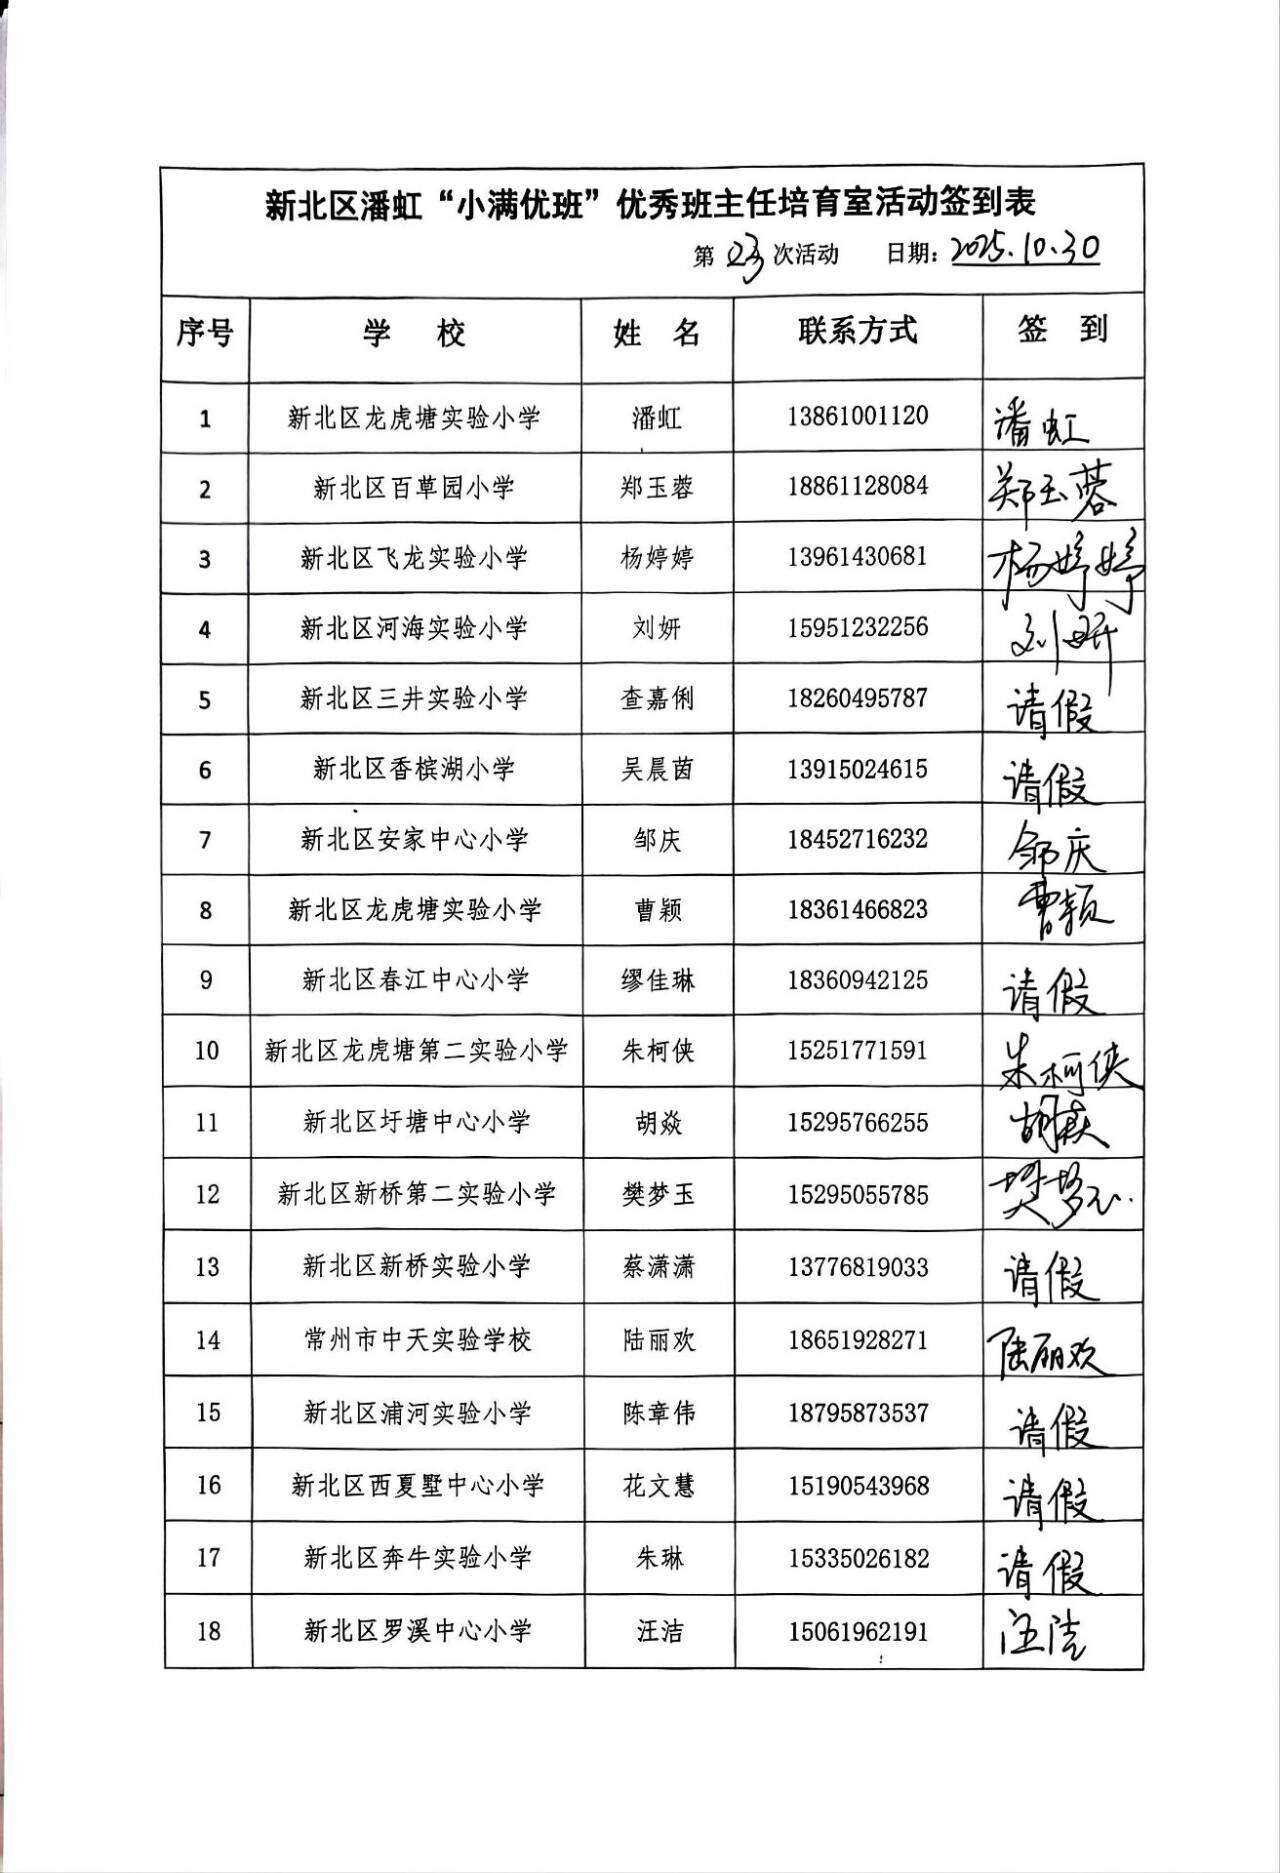 新北区潘虹“小满优班”优秀班主任培育室活动签到表
第 23 次活动 日期：2025.10.30
序号 学 校 姓 名 联系方式 签 到
1 新北区龙虎塘实验小学 潘虹 13861001120 潘虹
2 新北区百草园小学 郑玉蓉 18861128084 郑玉蓉
3 新北区飞龙实验小学 杨婷婷 13961430681 杨婷婷
4 新北区河海实验小学 刘妍 15951232256 刘妍
5 新北区三井实验小学 查嘉俐 18260495787 请假
6 新北区香槟湖小学 吴晨茵 13915024615 请假
7 新北区安家中心小学 邹庆 18452716232 邹庆
8 新北区龙虎塘实验小学 曹颖 18361466823 曹颖
9 新北区春江中心小学 缪佳琳 18360942125 请假
10 新北区龙虎塘第二实验小学 朱柯侠 15251771591 朱柯侠
11 新北区圩塘中心小学 胡焱 15295766255 胡焱
12 新北区新桥第二实验小学 樊梦玉 15295055785 樊梦玉
13 新北区新桥实验小学 蔡潇潇 13776819033 请假
14 常州市中天实验学校 陆丽欢 18651928271 陆丽欢
15 新北区浦河实验小学 陈章伟 18795873537 请假
16 新北区西夏墅中心小学 花文慧 15190543968 请假
17 新北区奔牛实验小学 朱琳 15335026182 请假
18 新北区罗溪中心小学 汪洁 15061962191 汪洁